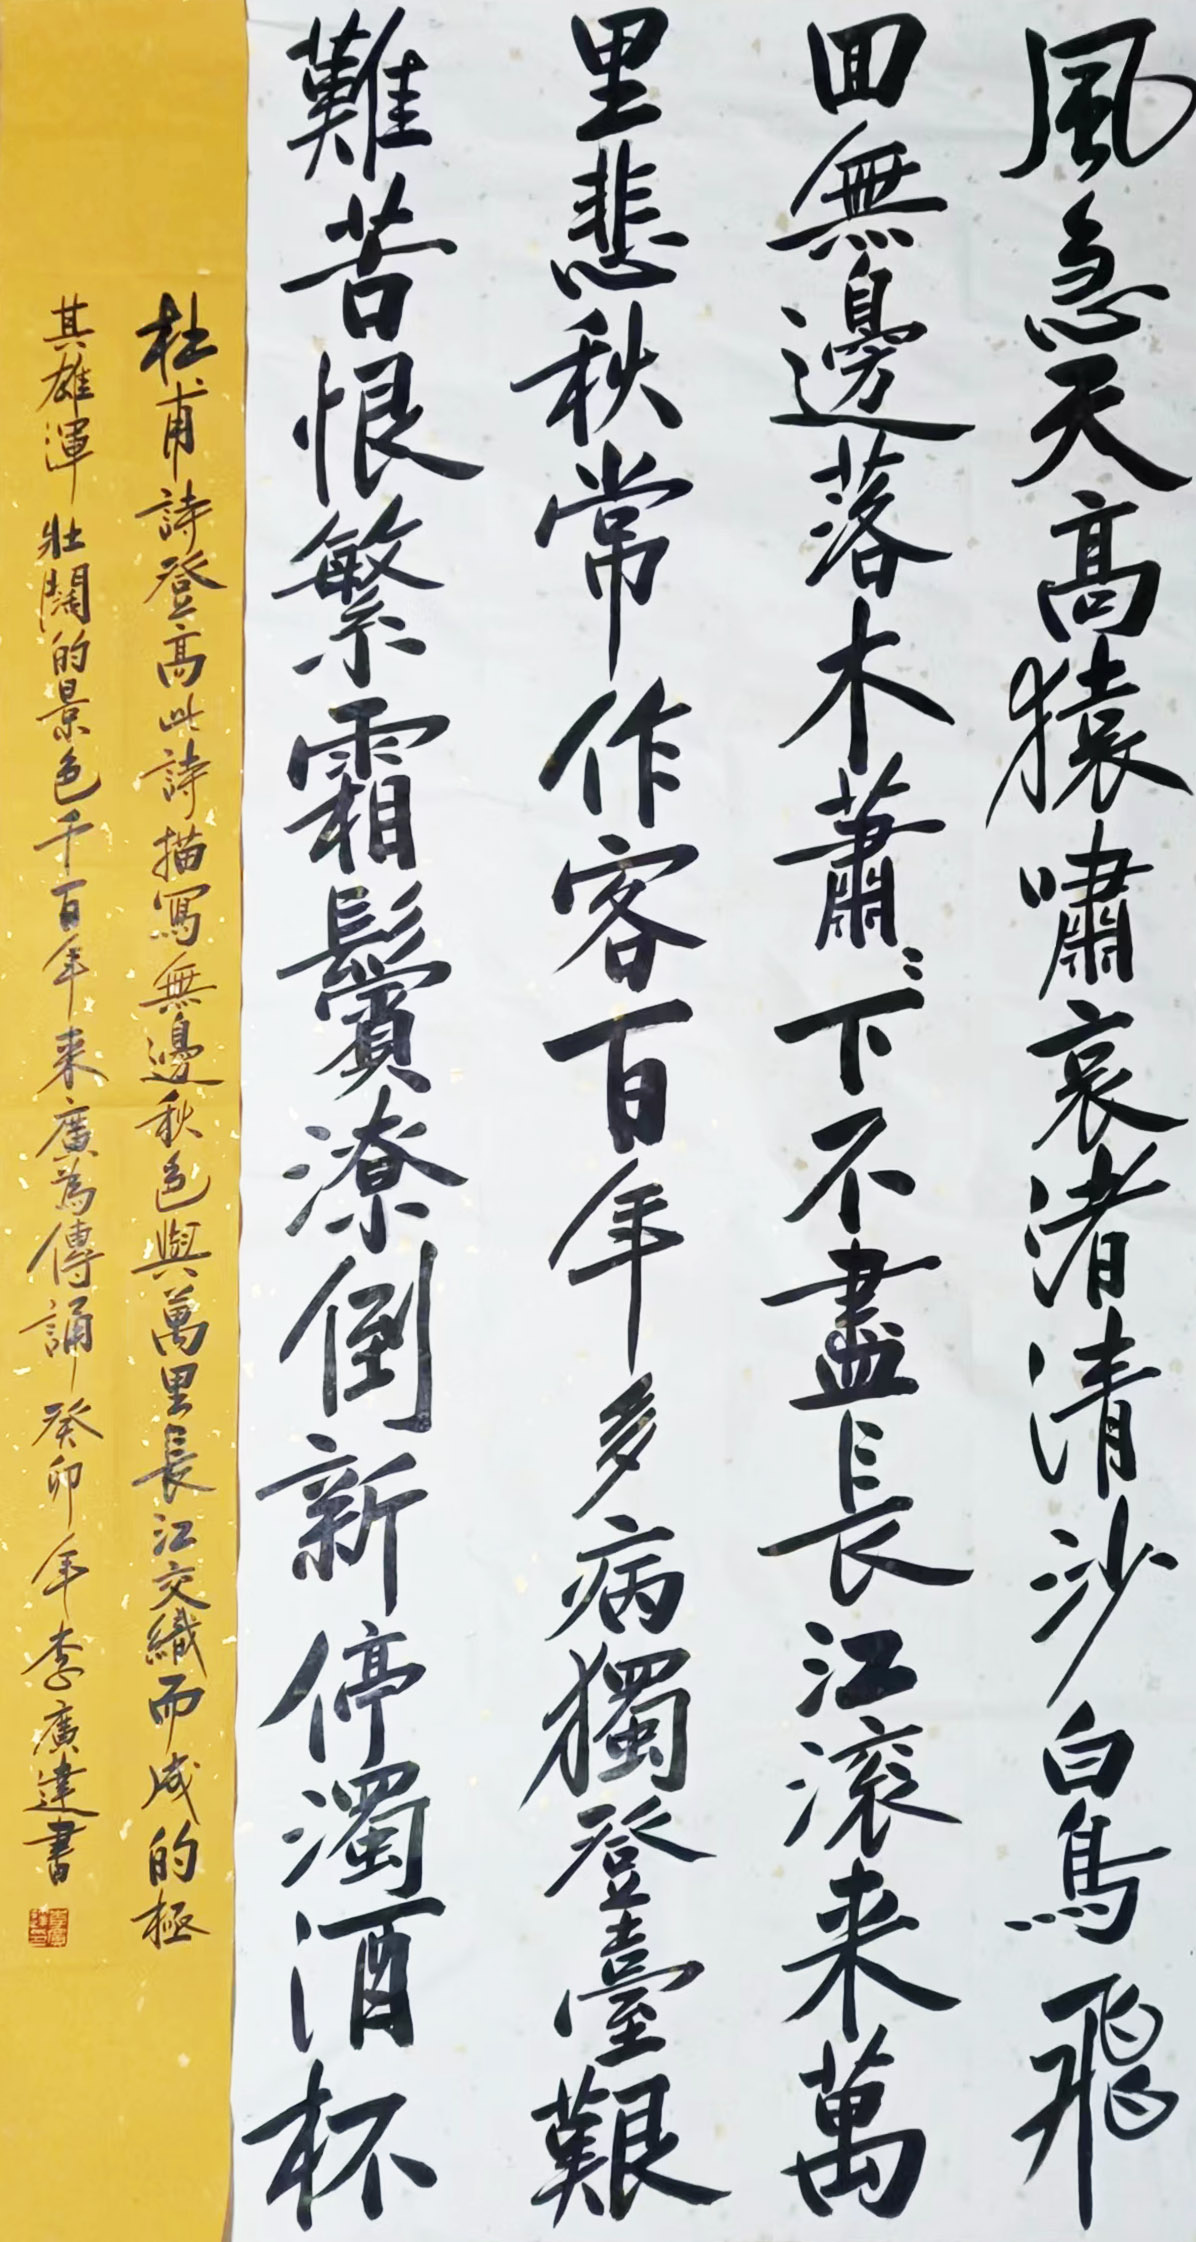 風急天高猿嘯哀渚清沙白鳥飛
回無邊落木蕭〻下不盡長江滚来萬
里悲秋常作客百年多病獨登臺艱
難苦恨繁霜鬢潦倒新停濁酒杯
杜甫詩登高此詩描寫無邊秋色與萬里長江交織而成的極
其雄渾壯闊的景色千百年来廣為傳誦癸卯年李廣建書